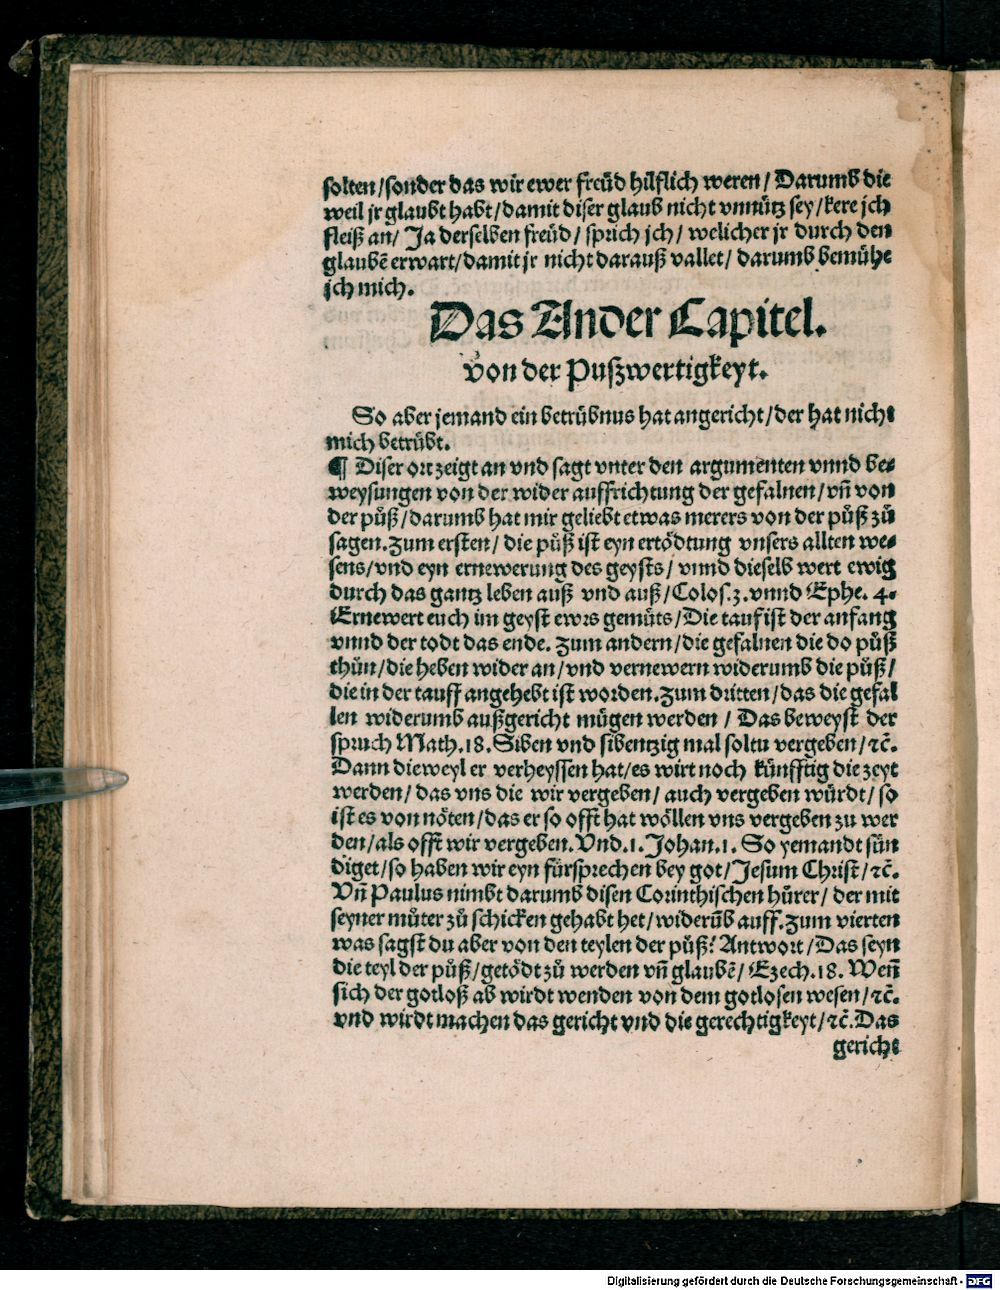 solten/sonder das wir ewer freüd hilflich weren/Darumb die
weil jr glaubt habt/damit diser glaub nicht vnnütz sey/kere jch
fleiß an/Ja derselben freüd/sprich jch/welicher jr durch den
glaubē erwart/damit jr nicht darauß vallet/darumb bemühe
jch mich.
Das Ander Capitel.
von der Puszwertigkeyt.
So aber jemand ein betrübnus hat angericht/der hat nicht
mich betrübt.
¶ Diser ort zeigt an vnd sagt vnter den argumenten vnnd be⸗
weysungen von der wider auffrichtung der gefalnen/vñ von
der půß/darumb hat mir geliebt etwas merers von der půß zů
sagen. Zum ersten/die půß ist eyn ertödtung vnsers allten we⸗
sens/vnd eyn ernewerung des geysts/vnnd dieselb wert ewig
durch das gantz leben auß vnd auß/Colos.3.vnnd Ephe. 4.
Ernewert euch im geyst ewrs gemüts/Die tauf ist der anfang
vnnd der todt das ende. Zum andern/die gefalnen die do půß
thün/die heben wider an/vnd vernewern widerumb die půß/
die in der tauff angehebt ist worden. Zum dritten/das die gefal
len widerumb außgericht mügen werden/Das beweyst der
spruch Math.18. Siben vnd sibentzig mal soltu vergeben/ꝛc̄.
Dann dieweyl er verheyssen hat/es wirt noch künfftig die zeyt
werden/das vns die wir vergeben/auch vergeben würdt/so
ist es von nöten/das er so offt hat wöllen vns vergeben zu wer
den/als offt wir vergeben. Vnd.1.Johan.1. So yemandt sün
diget/so haben wir eyn fürsprechen bey got/Jesum Christ/ꝛc̄.
Vñ Paulus nimbt darumb disen Corinthischen hůrer/der mit
seyner můter zů schicken gehabt het/widerūb auff. Zum vierten
was sagst du aber von den teylen der půß? Antwort/Das seyn
die teyl der půß/getödt zů werden vñ glaubē/Ezech.18. Weñ
sich der gotloß ab wirdt wenden von dem gotlosen wesen/ꝛc̄.
vnd wirdt machen das gericht vnd die gerechtigkeyt/ꝛc̄. Das
gericht
Digitalisierung gefördert durch die Deutsche Forschungsgemeinschaft - DFG